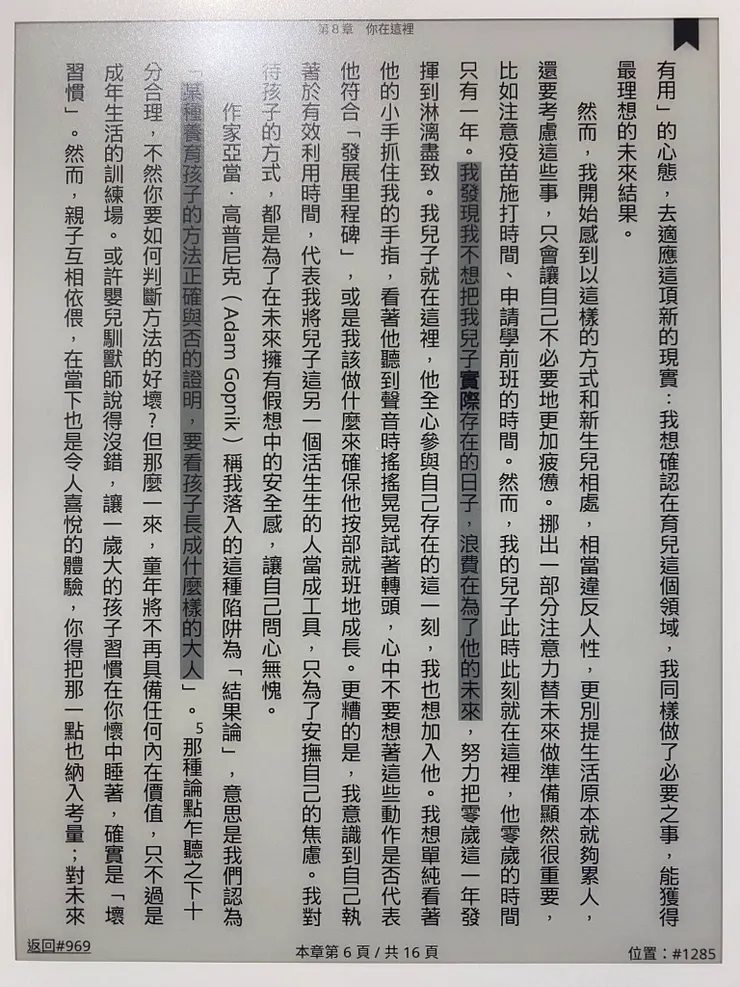 第8章 你在這裡
有用」的心態,去適應這項新的現實:我想確認在育兒這個領域,我同樣做了必要之事,能獲得
最理想的未來結果。
然而,我開始感到以這樣的方式和新生兒相處,相當違反人性,更別提生活原本就夠累人,
還要考慮這些事,只會讓自己不必要地更加疲憊。挪出一部分注意力替未來做準備顯然很重要,
比如注意疫苗施打時間、申請學前班的時間。然而,我的兒子此時此刻就在這裡,他零歲的時間
只有一年。我發現我不想把我兒子實際存在的日子,浪費在為了他的未來,努力把零歲這一年發
揮到淋漓盡致。我兒子就在這裡,他全心參與自己存在的這一刻,我也想加入他。我想單純看著
他的小手抓住我的手指,看著他聽到聲音時搖搖晃晃試著轉頭,心中不要想著這些動作是否代表
他符合「發展里程碑」,或是我該做什麼來確保他按部就班地成長。更糟的是,我意識到自己執
著於有效利用時間,代表我將兒子這另一個活生生的人當成工具,只為了安撫自己的焦慮。我對
待孩子的方式,都是為了在未來擁有假想中的安全感,讓自己問心無愧。
作家亞當.高普尼克(Adam Gopnik)稱我落入的這種陷阱為「結果論」,意思是我們認為
「某種養育孩子的方法正確與否的證明,要看孩子長成什麼樣的大人」。5那種論點乍聽之下十
分合理,不然你要如何判斷方法的好壞?但那麼一來,童年將不再具備任何內在價值,只不過是
成年生活的訓練場。或許嬰兒馴獸師說得沒錯,讓一歲大的孩子習慣在你懷中睡著,確實是「壞
習慣」。然而,親子互相依偎,在當下也是令人喜悅的體驗,你得把那一點也納入考量;對未來
返回#969
本章第 6 頁 / 共 16 頁
位置:#1285